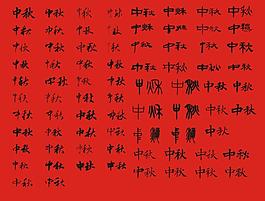 中秋 中秋 中秋 中秋
中秋 中秋 中秋 中秋
中秋 中秋 中秋 中秋
中秋 中秋 中秋 中秋
中秋 中秋 中秋 中秋
中秋 中秋 中秋 中秋
中秋 中秋 中秋 中秋
中秋 中秋 中秋 中秋
中秋 中秋 中秋 中秋
中秋 中秋 中秋 中秋
中秋 中秋
中秋 中秋 中秋 中秋
中秋 中秋 中秋 中秋
中秋 中秋 中秋 中秋
中秋 中秋 中秋 中秋
中秋 中秋 中秋 中秋
中秋 中秋 中秋 中秋
中秋
中秋 中秋 中秋 中秋
中秋 中秋 中秋